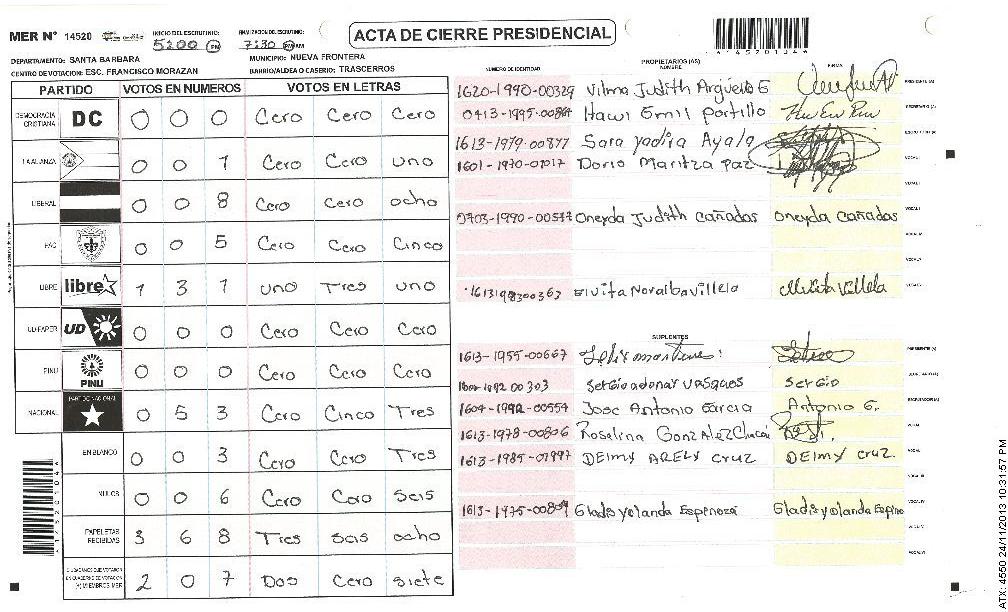 MER N° 14520
INICIO DEL ESCRUTINIO: 5:00 PM
FINALIZACION DEL ESCRUTINIO: 7:30 PM AM
ACTA DE CIERRE PRESIDENCIAL
DEPARTAMENTO: SANTA BARBARA
MUNICIPIO: NUEVA FRONTERA
CENTRO DE VOTACION: ESC. FRANCISCO MORAZAN
BARRIO/ALDEA O CASERIO: TRASCERROS
PARTIDO VOTOS EN NUMEROS VOTOS EN LETRAS
DEMOCRACIA CRISTIANA DC 0 0 0 Cero Cero Cero
LA ALIANZA 0 0 1 Cero Cero uno
LIBERAL 0 0 8 Cero Cero ocho
PAC 0 0 5 Cero Cero Cinco
LIBRE libre 1 3 1 uno Tres uno
UD FAPER UD 0 0 0 Cero Cero Cero
PINU PINU 0 0 0 Cero Cero Cero
NACIONAL PARTIDO NACIONAL 0 5 3 Cero Cinco Tres
EN BLANCO 0 0 3 Cero Cero Tres
NULOS 0 0 6 Cero Cero Seis
PAPELETAS RECIBIDAS 3 6 8 Tres seis ocho
CIUDADANOS QUE VOTARON EN CUADERNO DE VOTACION (+) MIEMBROS MER 2 0 7 Dos Cero siete
NUMERO DE IDENTIDAD PROPIETARIOS (AS) NOMBRE FIRMA
1620-1990-00329 Vilma Judith Argüeta E PRESIDENTE (A)
0413-1995-00864 Emil Portillo SECRETARIO (A)
1613-1979-00877 Sara Yadira Ayala ESCRUTADOR (A)
1601-1970-01017 Doris Maritza Paz VOCAL I
VOCAL II
0703-1990-00577 Oneyda Judith Cañadas Oneyda Cañadas VOCAL III
VOCAL IV
VOCAL V
1613198300363 Elvita Villela VOCAL VI
SUPLENTES
1613-1955-00667 PRESIDENTE (A)
1992 00303 Sergio adonay vasques Sergio SECRETARIO (A)
1604-1992-00554 Jose Antonio Garcia Antonio G. ESCRUTADOR (A)
1613-1978-00806 Rosalina Gonzalez Chacón VOCAL I
1613-1985-01997 DEIMY ARELY CRUZ DEIMY CRUZ. VOCAL II
VOCAL III
1613-1975-00809 Gladis yolanda Espinoza Gladis yolanda Espino VOCAL IV
VOCAL V
VOCAL VI
ATX: 4550 24/11/2013 10:31:57 PM